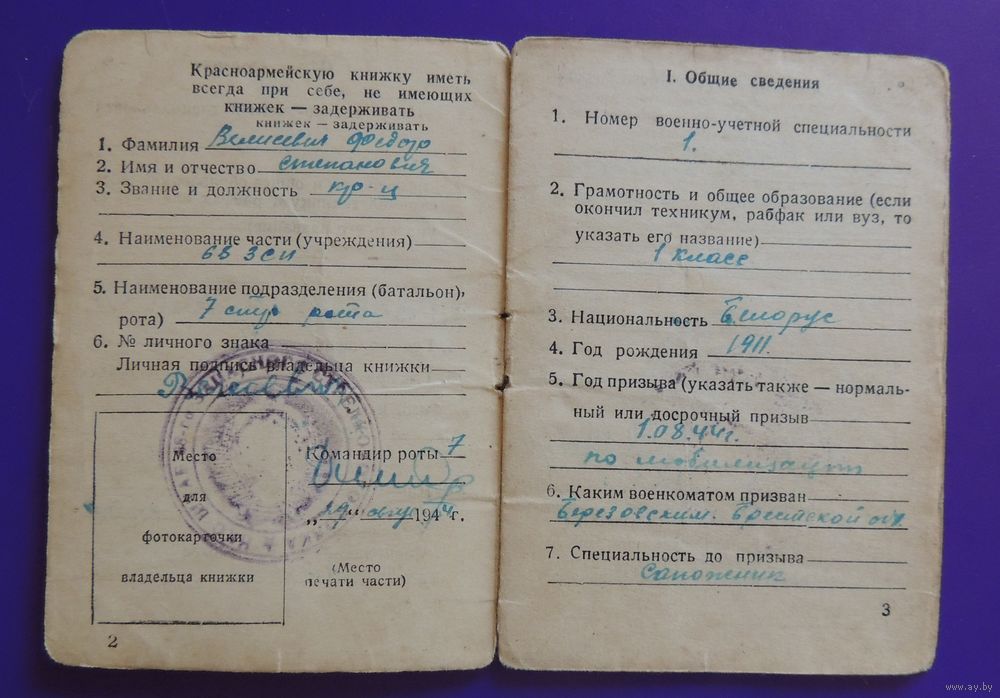 Красноармейскую книжку иметь
всегда при себе, не имеющих
книжек — задерживать
книжек — задерживать
1. Фамилия
2. Имя и отчество Степанович
3. Звание и должность кр-ц
4. Наименование части (учреждения)
65 ЗСП
5. Наименование подразделения (батальон,
рота) 7 стр рота
6. № личного знака
Личная подпись владельца книжки
Место
для
фотокарточки
владельца книжки
Командир роты 7
„29" авгу 1944 г.
(Место
печати части)
2
I. Общие сведения
1. Номер военно-учетной специальности
1.
2. Грамотность и общее образование (если
окончил техникум, рабфак или вуз, то
указать его название)
1 класс
3. Национальность Белорус
4. Год рождения 1911.
5. Год призыва (указать также — нормаль-
ный или досрочный призыв
1.08.44г.
по мобилизации
6. Каким военкоматом призван
Березовским. Брестской обл
7. Специальность до призыва
Сапожник
3
www.ay.by